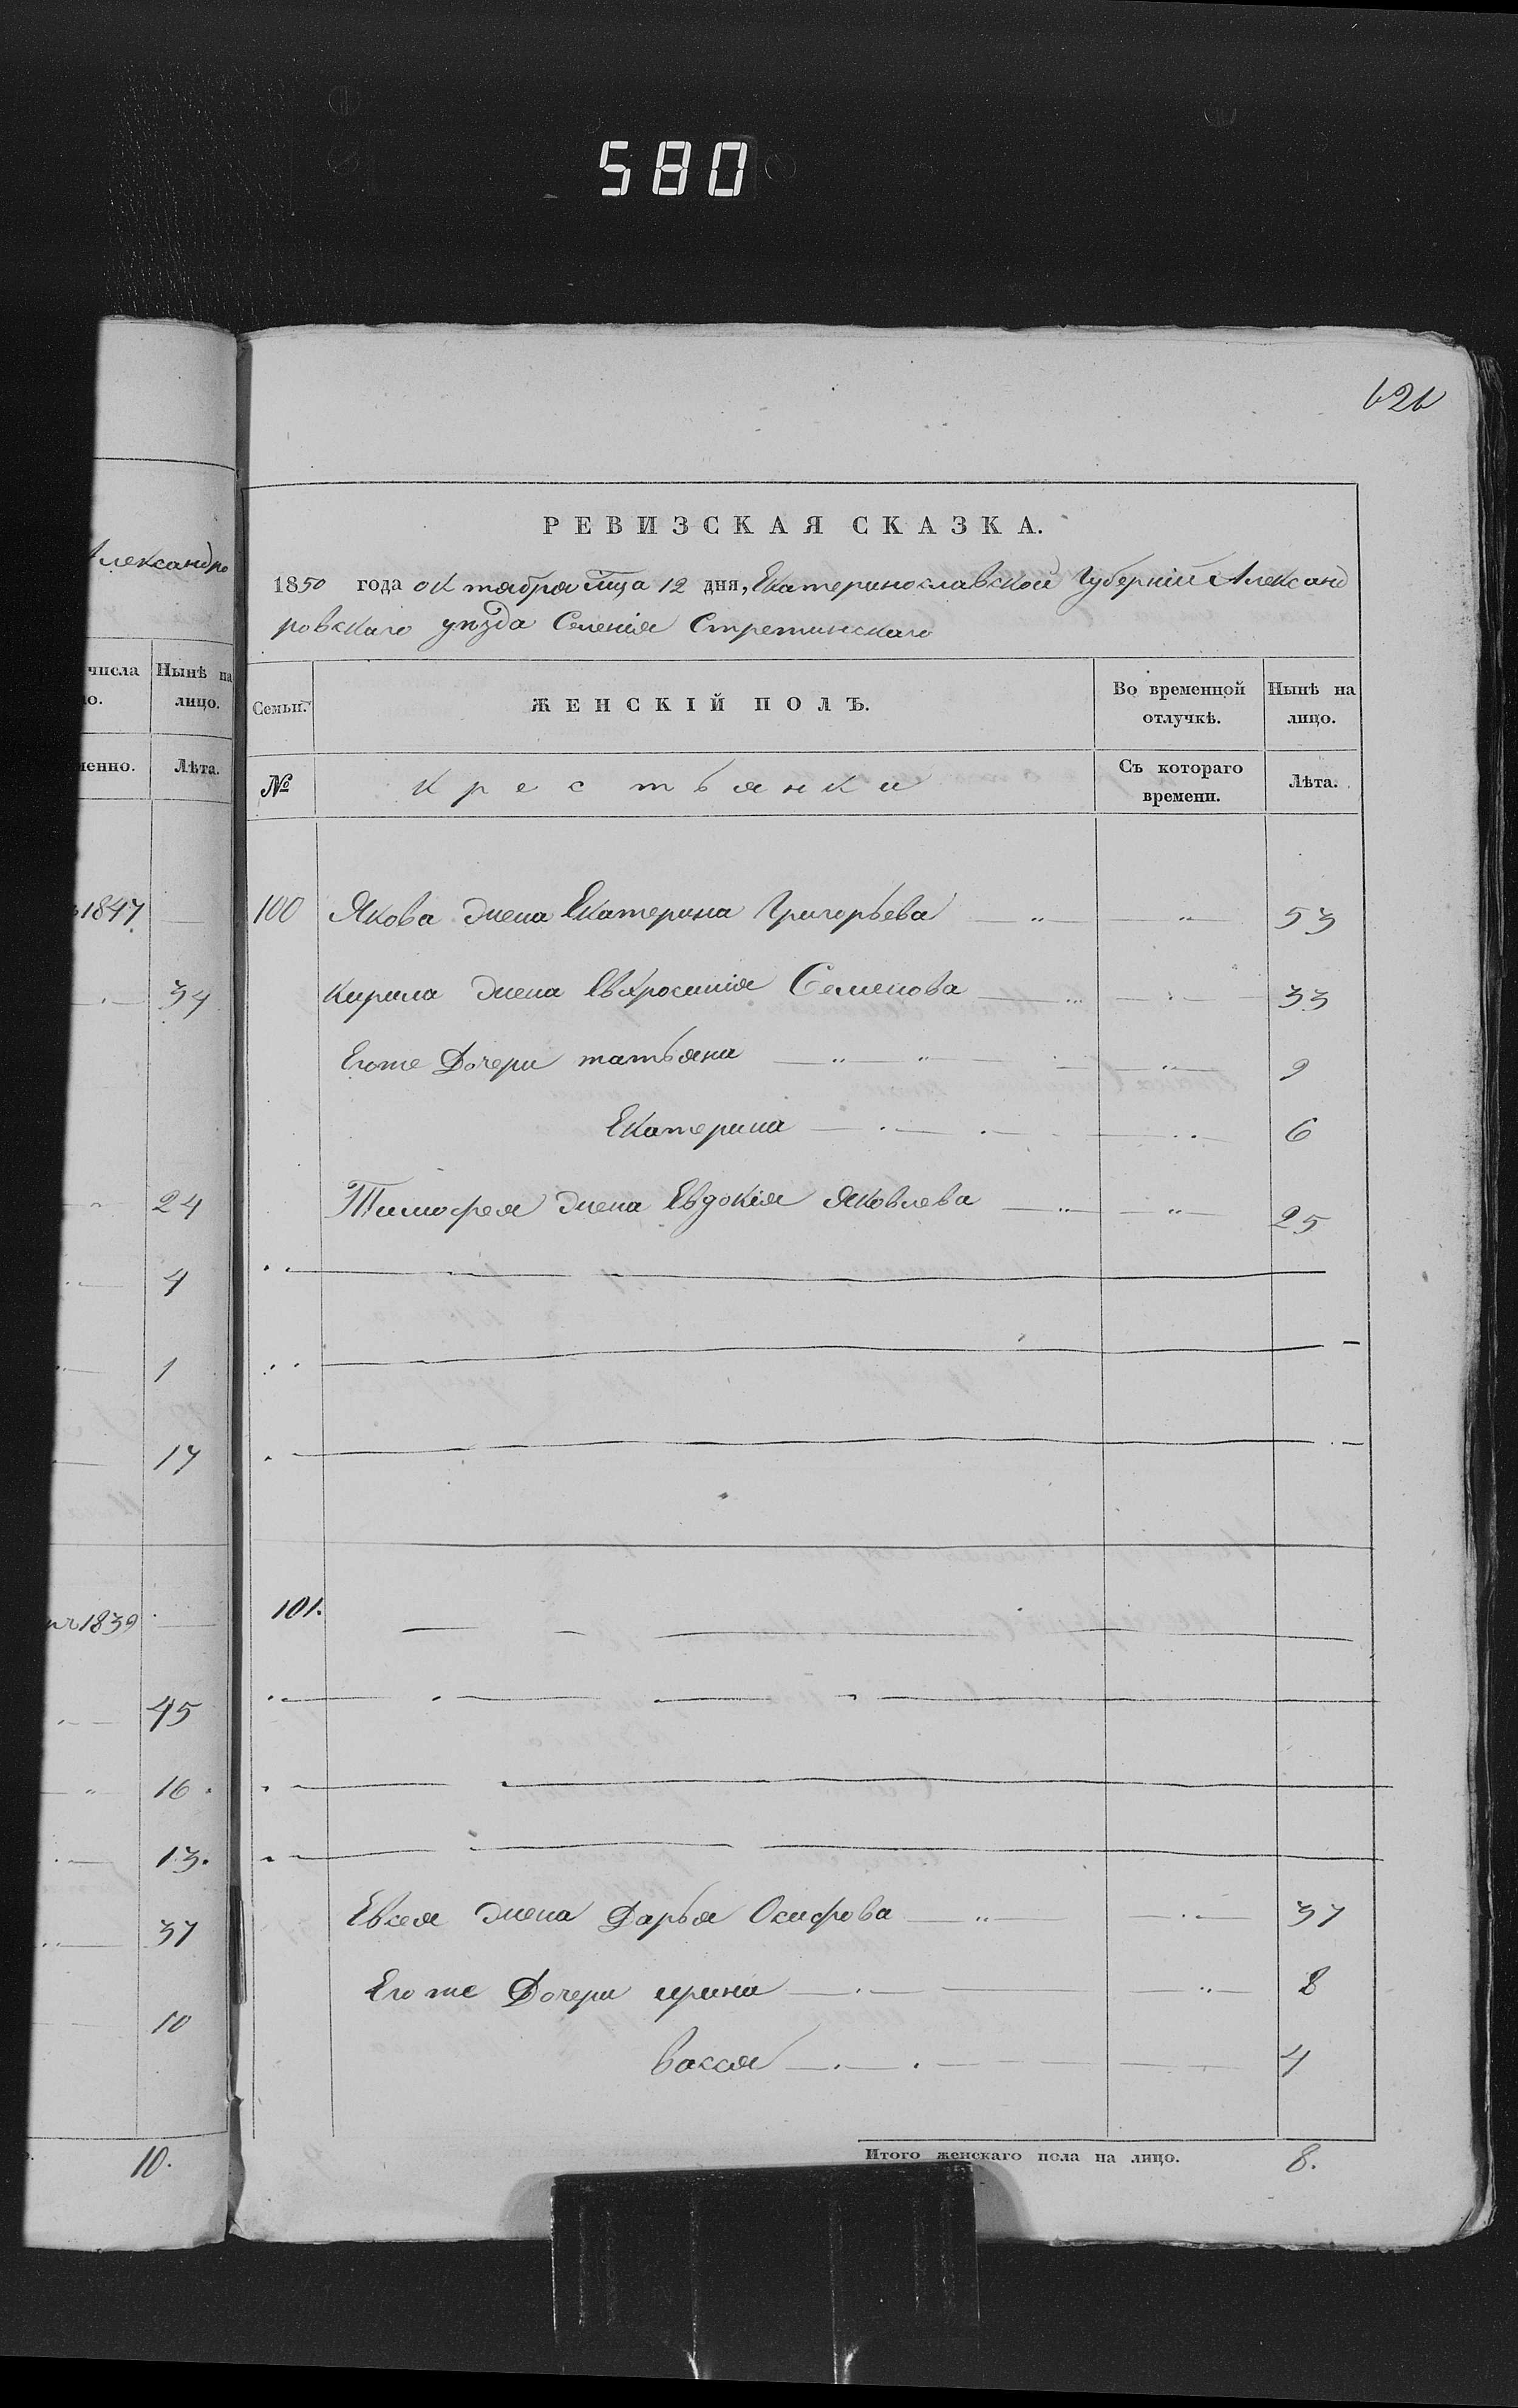 580
626
Александро
РЕВИЗСКАЯ СКАЗКА.
1850 года октября мца 12 дня, Екатеринославской Губерніи Александ
ровскаго уѣзда Селенія Стретинскаго
числа Нынѣ на лицо.
менно. Лѣта.
Семьи. ЖЕНСКІЙ ПОЛЪ. Во временной отлучкѣ. Нынѣ на лицо.
№ крестьянки Съ котораго времени. Лѣта.
1847
100 Якова жена Екатерина Григорьева — „ — „ — 53
34
Кирила жена Евхросинія Семенова — „ — „ — 33
Егоже Дочери татьяна — „ — „ — „ — 9
Екатерина — . — . — „ — 6
24
Тимофея жена Евдокія Яковлева — „ — „ — 25
4
1
17
1839
101.
45
16.
13.
37
Евсея жена Дарья Осифова — „ — . — 37
Егоже Дочери ирина — . — „ — 8
10
Васса — . — . — 4
10.
Итого женскаго пола на лицо. 8.